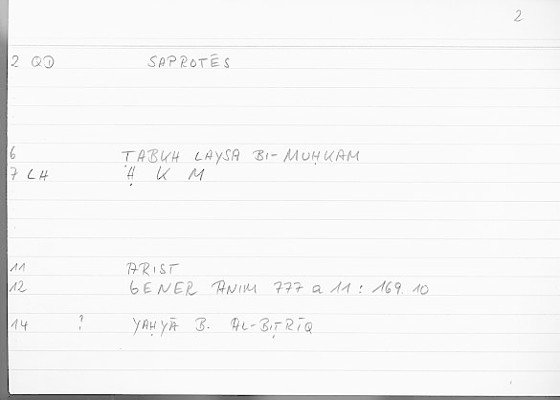 2
2 QD SAPROTĒS
6 ṬABKH LAYSA BI-MUḤKAM
7 LH Ḥ K M
11 ARIST
12 GENER ANIM 777 a 11 : 169.10
14 ? YAḤYĀ B. AL-BIṬRĪQ